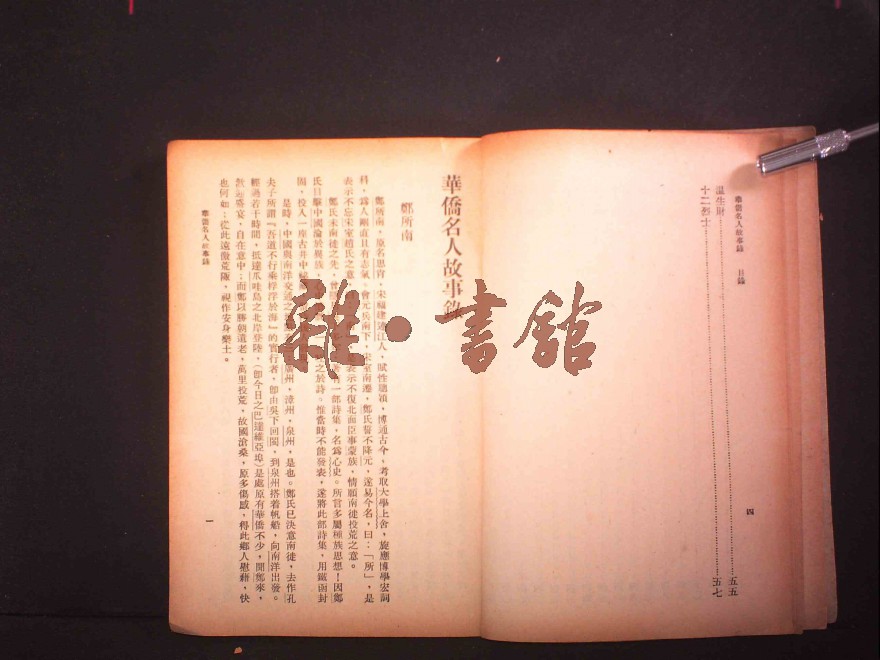 華僑名人故事錄 目錄
溫生財……五五
十二烈士……五七
四
華僑名人故事錄
鄭所南
鄭所南，原名思肖，宋福建連江人，賦性聰穎，博通古今，考取大學上舍，旋應博學宏詞
科，爲人剛直且有志氣。會元兵南下，宋室南遷，鄭氏誓不降元，遂易今名，曰：「所」，是
表示不忘宋室趙氏之意 表示不復北面臣事蒙族，情願南徙投荒之意。
鄭氏未南徙之先，曾 有一部詩集，名爲心史。所言多屬種族思想！因鄭
氏目擊中國淪於異族， 之於詩。惟當時不能發表，遂將此部詩集，用鐵函封
固，投入一座古井中
是時，中國與南洋交通之 廣州，漳州，泉州，是也。鄭氏已決意南徙，去作孔
夫子所謂『吾道不行乘桴浮於海』的實行者，卽由吳下回閩，到泉州搭着帆船，向南洋出發。
經過若干時間，抵達爪哇島之北岸登陸，（卽今日之巴達維亞埠）是處原有華僑不少，聞鄭來，
歡迎盛宴，自在意中；而鄭以勝朝遺老，萬里投荒，故國滄桑，原多傷感，得此鄉人慰藉，快
也何如；從此遠徼荒陬，視作安身樂土。
華僑名人故事錄
一
雜·書館